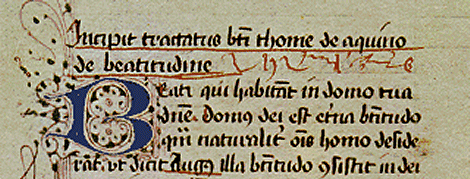 Incipit tractatus bti thome de aquino
de beatitudine
Beati qui habitant in domo tua
dne. Domus dei est etna btitudo
qm naturalit ois homo deside
rat. ut dicit Aug. Illa btitudo gsistit in dei